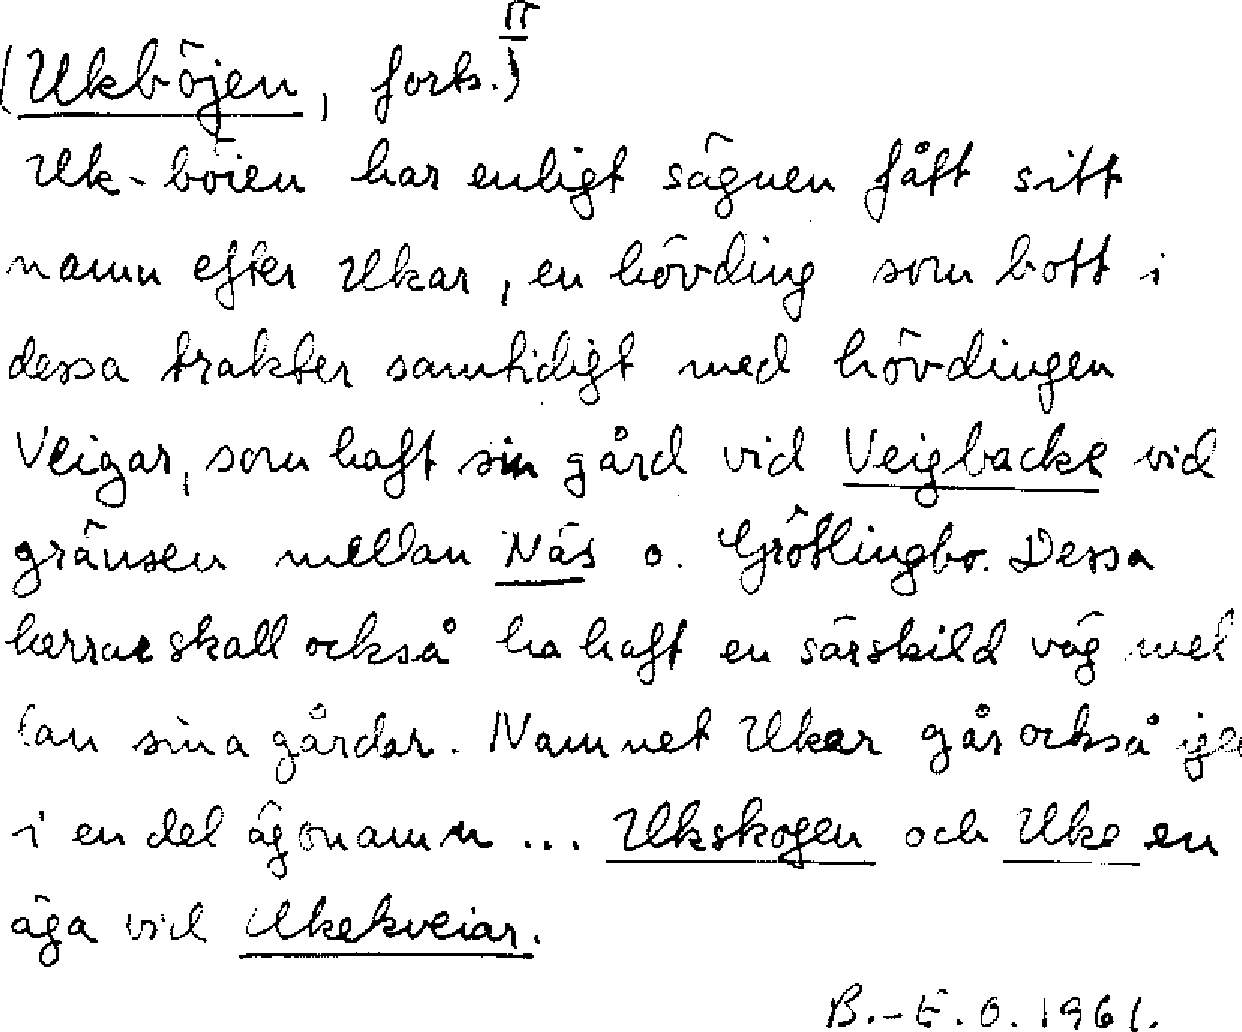 II
(Ukböjen, forts.)
Uk-böien har enligt sägnen fått sitt
namn efter Ukar, en hövding som bott i
dessa trakter samtidigt med hövdingen
Veigar, som haft sin gård vid Veigbacke vid
gränsen mellan Näs o. Grötlingbo. Dessa
herrar skall också ha haft en särskild väg mel
lan sina gårdar. Namnet Ukar går också ige
i en del ägonamn ... Ukskogen och Uke en
äga vid Ukekveiar.
B.-E.O. 1961.